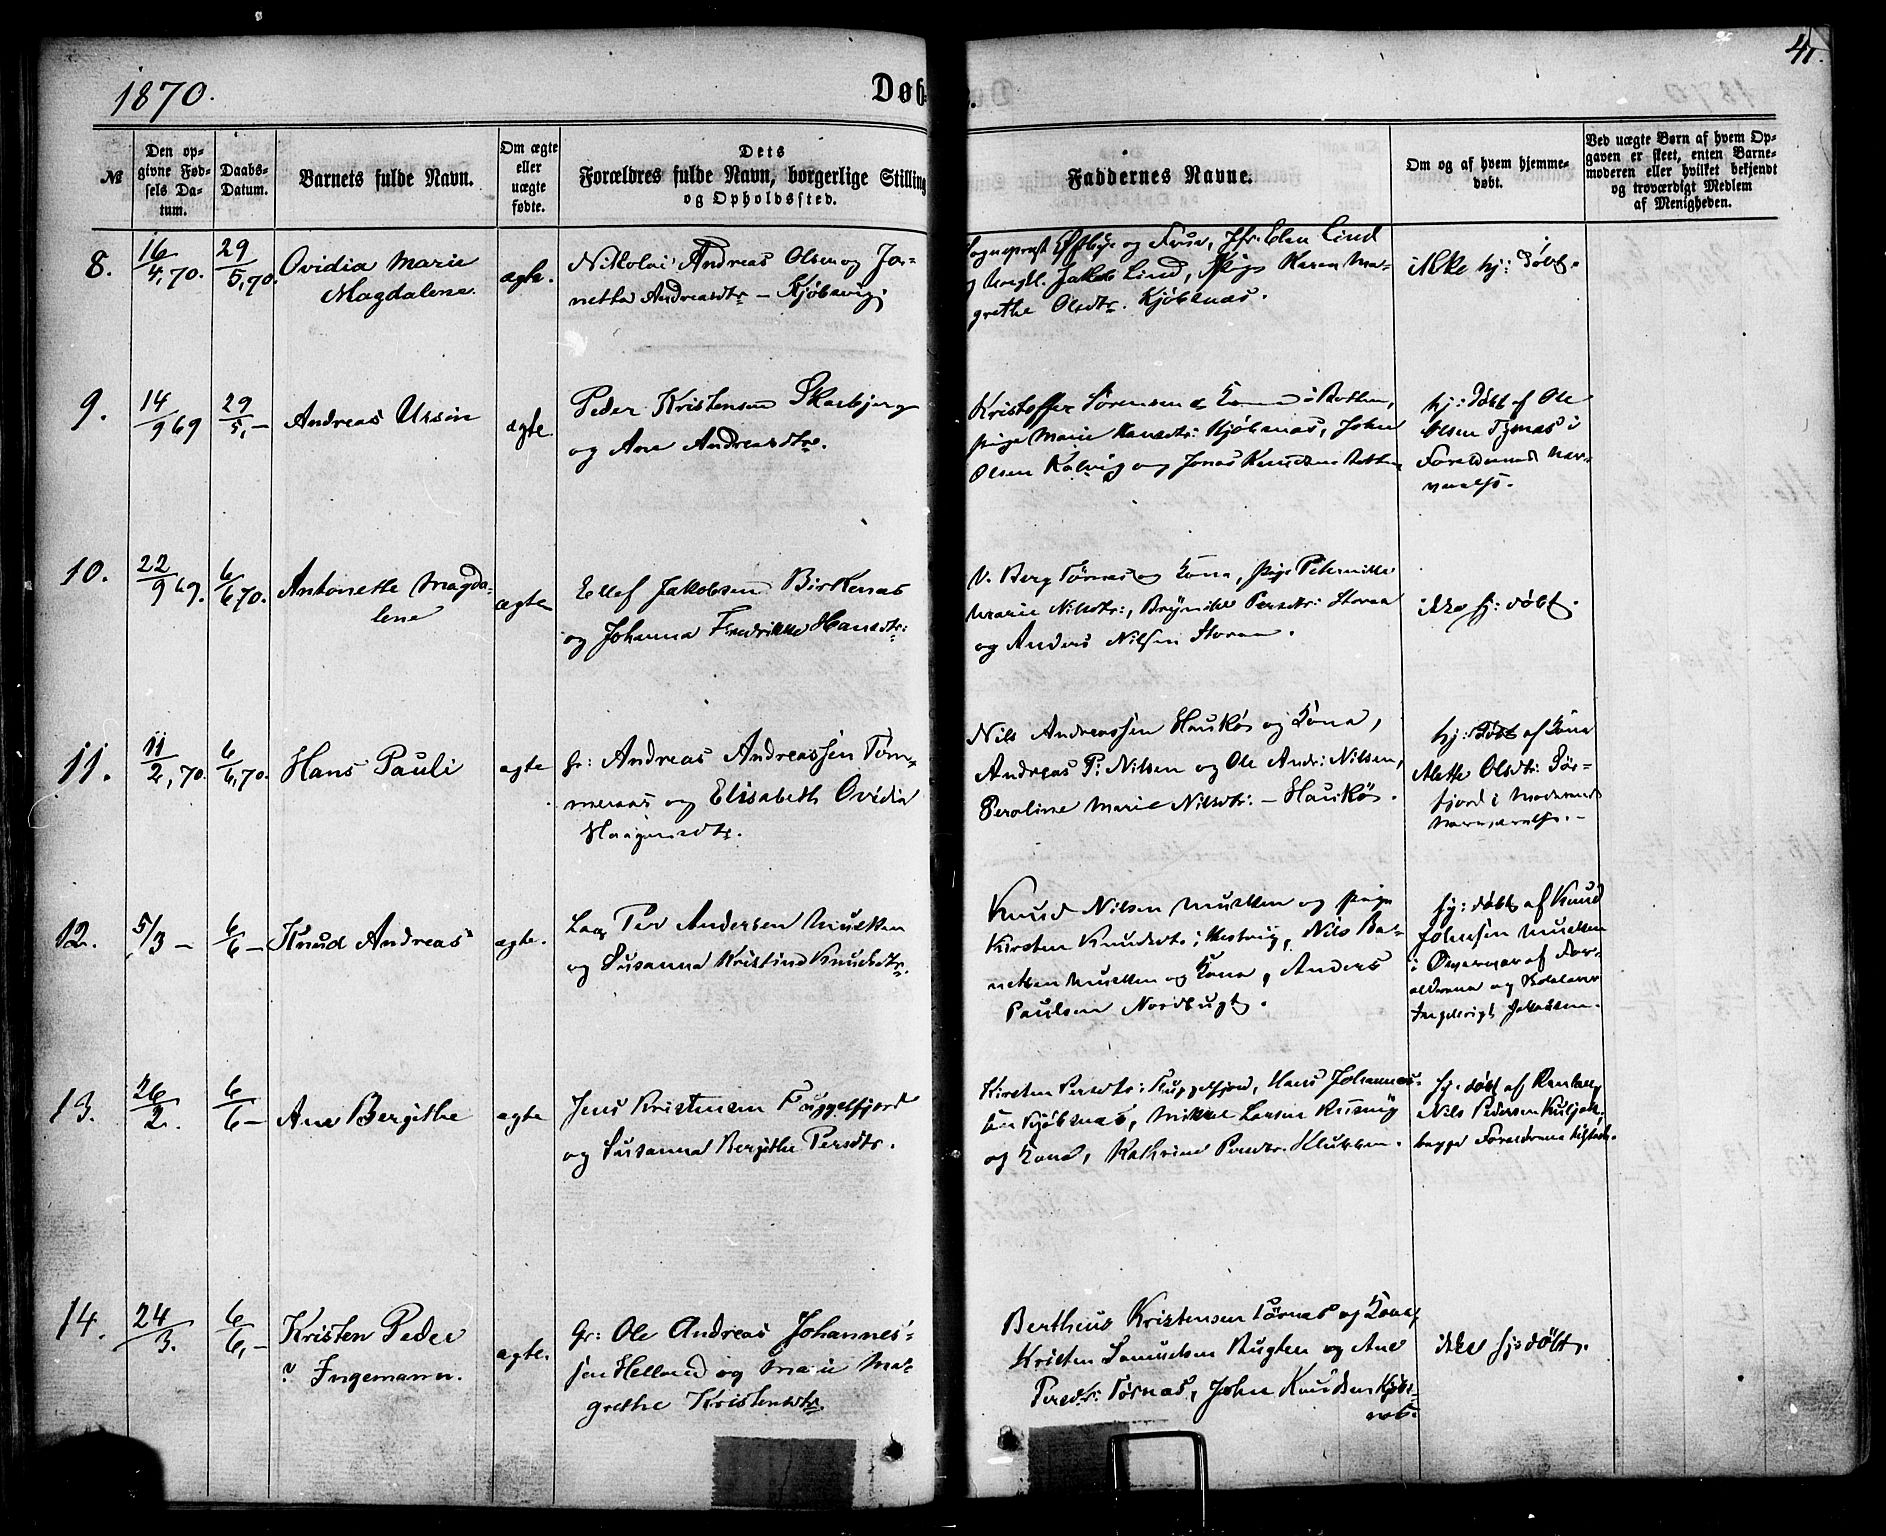 1870.
Døb
41.
№
Den opgivne Fødsels Datum.
Daabs-Datum.
Barnets fulde Navn.
Om ægte eller uægte fødte.
Dets Forældres fulde Navn, borgerlige Stilling og Opholdssted.
Faddernes Navne.
Om og af hvem hjemmedøbt.
Ved uægte Børn af hvem Opgaven er skeet, enten Barnemoderen eller hvilket bekjendt og troværdigt Medlem af Menigheden.
8.
16/4,70.
29/5,70.
Ovidia Marie
Magdalene.
ægte.
Nikolai Andreas Olsen og Jo-
netta Andreasdtr –
Sogneprest og Frue, Jfr: Elen Lind
Jakob Lind, Pige Karen Ma-
grethe Olsdtr. Kjöbsnæs.
ikke hj: döbt.
9.
14/9 69
29/5,–
Andreas Ursin
ægte.
Peder Kristensen Skarbjerg
og Ane Andreasdtr.
Kristoffer Sörensen & Kona i Botten,
pige Marie Hansdtr: Kjöbsnæs, John
Olsen Kalvig og Jonas Knudsen Botten
hj: döbt af Ole
Olsen i
Forældrenes Nær-
værelse.
10.
22/9 69.
6/6 70.
Antonette Magda-
lene
ægte
Ellef Jakobsen Birkenæs
og Johanna Fredrikke Hansdtr:
Berg Törnæs og Kona, pige Peternille
Marie Nilsdtr:, Persdtr: Storaa
og Anders Nilsen Storaa.
ikke hj: döbt.
11.
11/2,70.
6/6,70.
Hans Pauli
ægte
Gr: Andreas Andreassen Töm-
meraas og Elisabeth Ovidia
Haagensdtr.
Nils Andreassen Haukös og Kona,
Andreas P: Nilsen og Ole Andr: Nilsen,
Peroline Marie Nilsdtr: – Haukös.
hj: döbt af Kona
Alette Olsdtr: Sör-
fjord i Moderens
Nærværelse. –
12.
5/3 –
6/6 –
Knud Andreas
ægte.
Per Andersen Mulken
og Susanna Kristine Knudsdtr.
Knud Nilsen Mulken og pige
Kirsten Knudsdtr: , Nils
Mulken og Kona, Anders
Paulsen Nordbugt.
hj: döbt af Knud
Johnsen Mulken
i Overvær af For-
ældrene og
Jakobsen.
13.
26/2.
6/6 –
Ane Bergithe
ægte
Jens Kristensen Fuggelfjord
og Susanna Bergithe Persdtr.
Kirsten Persdtr: Fuggelfjord, Hans Johannes-
sen Kjöbsnæs, Mikkel Larsen
og Kona, Kathrine Persdtr. Klubben.
hj. döbt af
Nils Pedersen
begge Forældrene
14.
24/3.
6/6,–
Kristen Peder
? Ingemann.
ægte.
Gr: Ole Andreas Johannes-
sen Helland og Marie Ma-
grethe Kristensdtr
Bertheus Kristensen Törnæs og Kona,
Kristen Samuelsen Bugten og Ane
Persdtr: Törnæs, John Knudsen Kjöbs-
næs.
ikke hj: döbt.